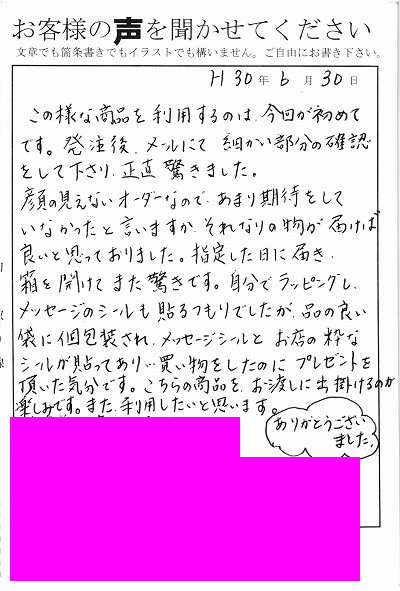 お客様の声を聞かせてください
文章でも箇条書きでもイラストでも構いません。ご自由にお書き下さい。
H30年6月30日
この様な商品を利用するのは、今回が初めて
です。発注後、メールにて細かい部分の確認
をして下さり、正直驚きました。
顔の見えないオーダーなので、あまり期待をして
いなかったと言いますか、それなりの物が届けば
良いと思っておりました。指定した日に届き、
箱を開けてまた驚きです。自分でラッピングし、
メッセージのシールも貼るつもりでしたが、品の良い
袋に個包装され、メッセージシールとお店の粋な
シールが貼ってあり…買い物をしたのにプレゼントを
頂いた気分です。こちらの商品を、お渡しに出掛けるのが
楽しみです。また、利用したいと思います。
ありがとうござい
ました。